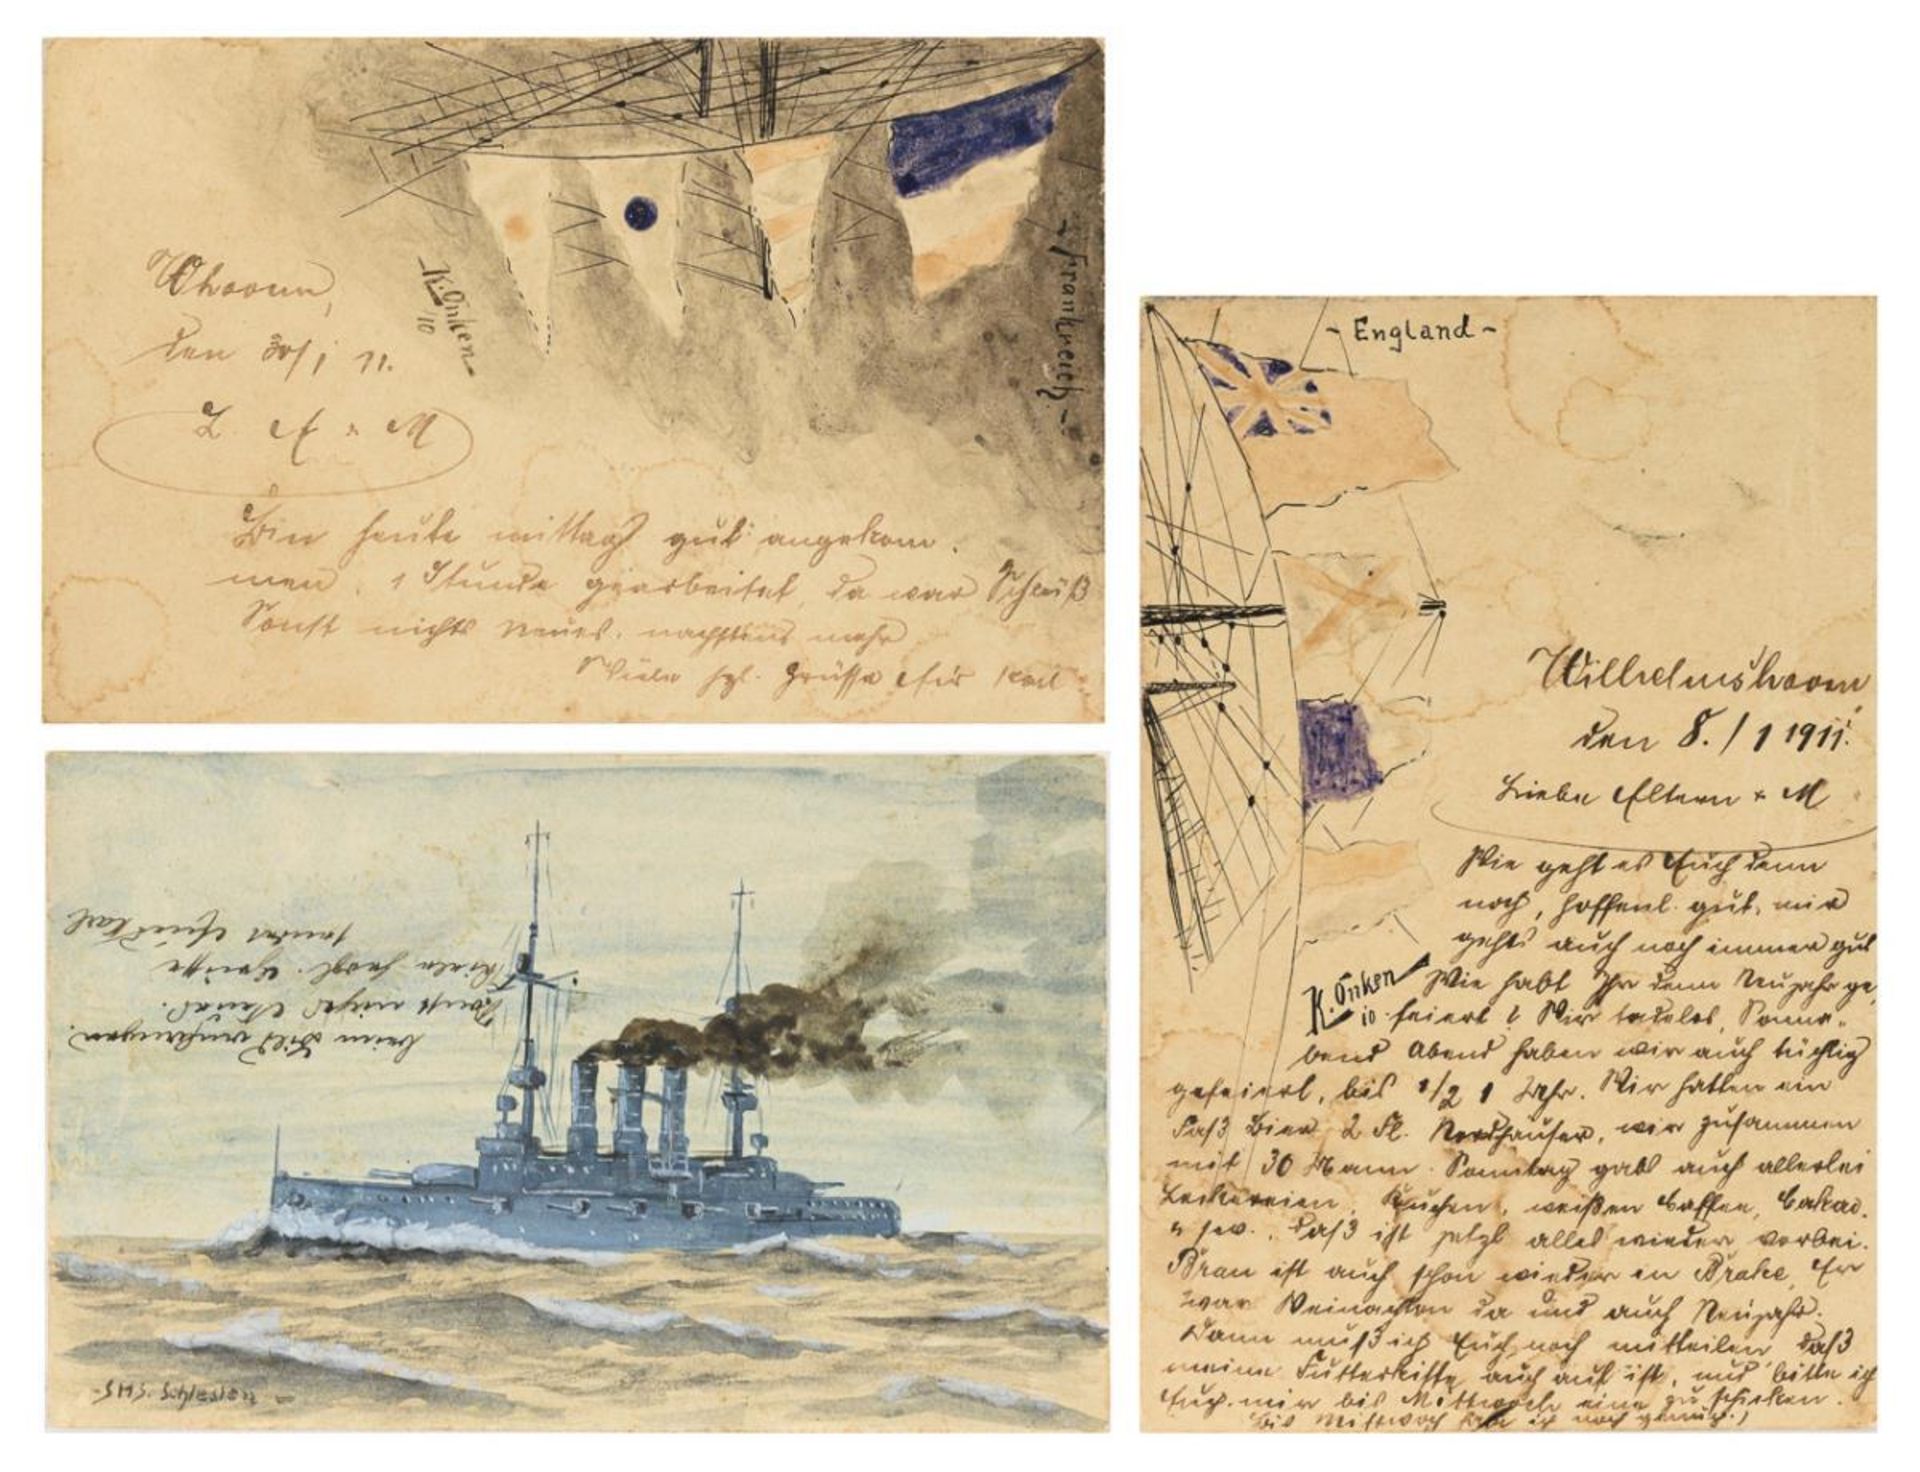 Whaven,
den 30/1 11.
L. E + M
Bin heute mittag gut angekom-
men. 1 Stunde gearbeitet, da war Schluß
Sonst nichts neues. nächstens mehr
Viele hzl. Grüsse Euer Karl
K. Onken
10
- Frankreich -
beim Bild
Sonst nichts Neues.
Viele herzl. Grüsse
sendet Euer Karl
- SMS. Schlesien -
- England -
Wilhelmshaven,
den 8./1 1911.
Liebe Eltern + M
Wie geht es Euch denn
noch, hoffentl. gut, mir
gehts auch noch immer gut
K. Onken
10
Wie habt Ihr denn Neujahr ge-
feiert? Wir tadelos, Sonna-
bend Abend haben wir auch tüchtig
gefeiert, bis 1/2 1 Uhr. Wir hatten ein
Faß Bier 2 Fl. Nordhäuser, wir zusammen
mit 30 Mann. Sonntag gabs auch allerlei
Leckereien, Kuchen, weißen Caffee, Cakao.
u sw. Daß ist jetzt alles wieder vorbei.
Bran ist auch schon wieder in Brake, Er
war Weinachten da und auch Neujahr.
Dann muß ich Euch noch mitteilen, daß
meine Futterkiste auch auf ist, und bitte ich
Euch mir bis Mittwoch eine zu schicken.
(Bis Mittwoch habe ich noch genug.)